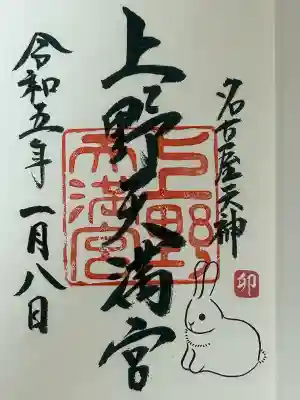 名古屋天神
卯
上野天満宮
上野天満宮
令和五年 一月八日